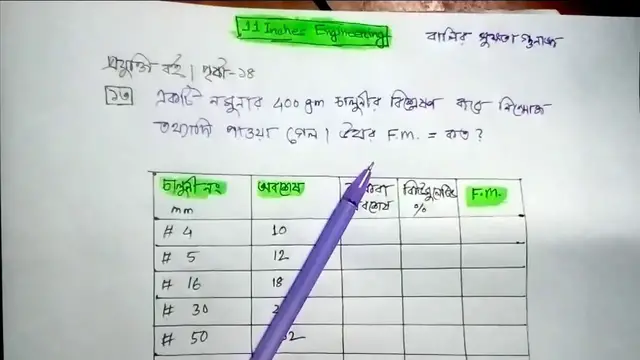 11 Inches Engineering
বালির সুক্ষতা গুনাঙ্ক
প্রযুক্তি বই। পৃষ্ঠা-১৪
১৩ একটি নমুনার 400 gm চালুনীর বিশ্লেষণ করে নিম্নোক্ত
তথ্যাদি পাওয়া গেল। ইহার F.M. = কত?
চালুনী নং mm
অবশেষ
%
F.M.
# 4 10
# 5 12
# 16 18
# 30
# 50